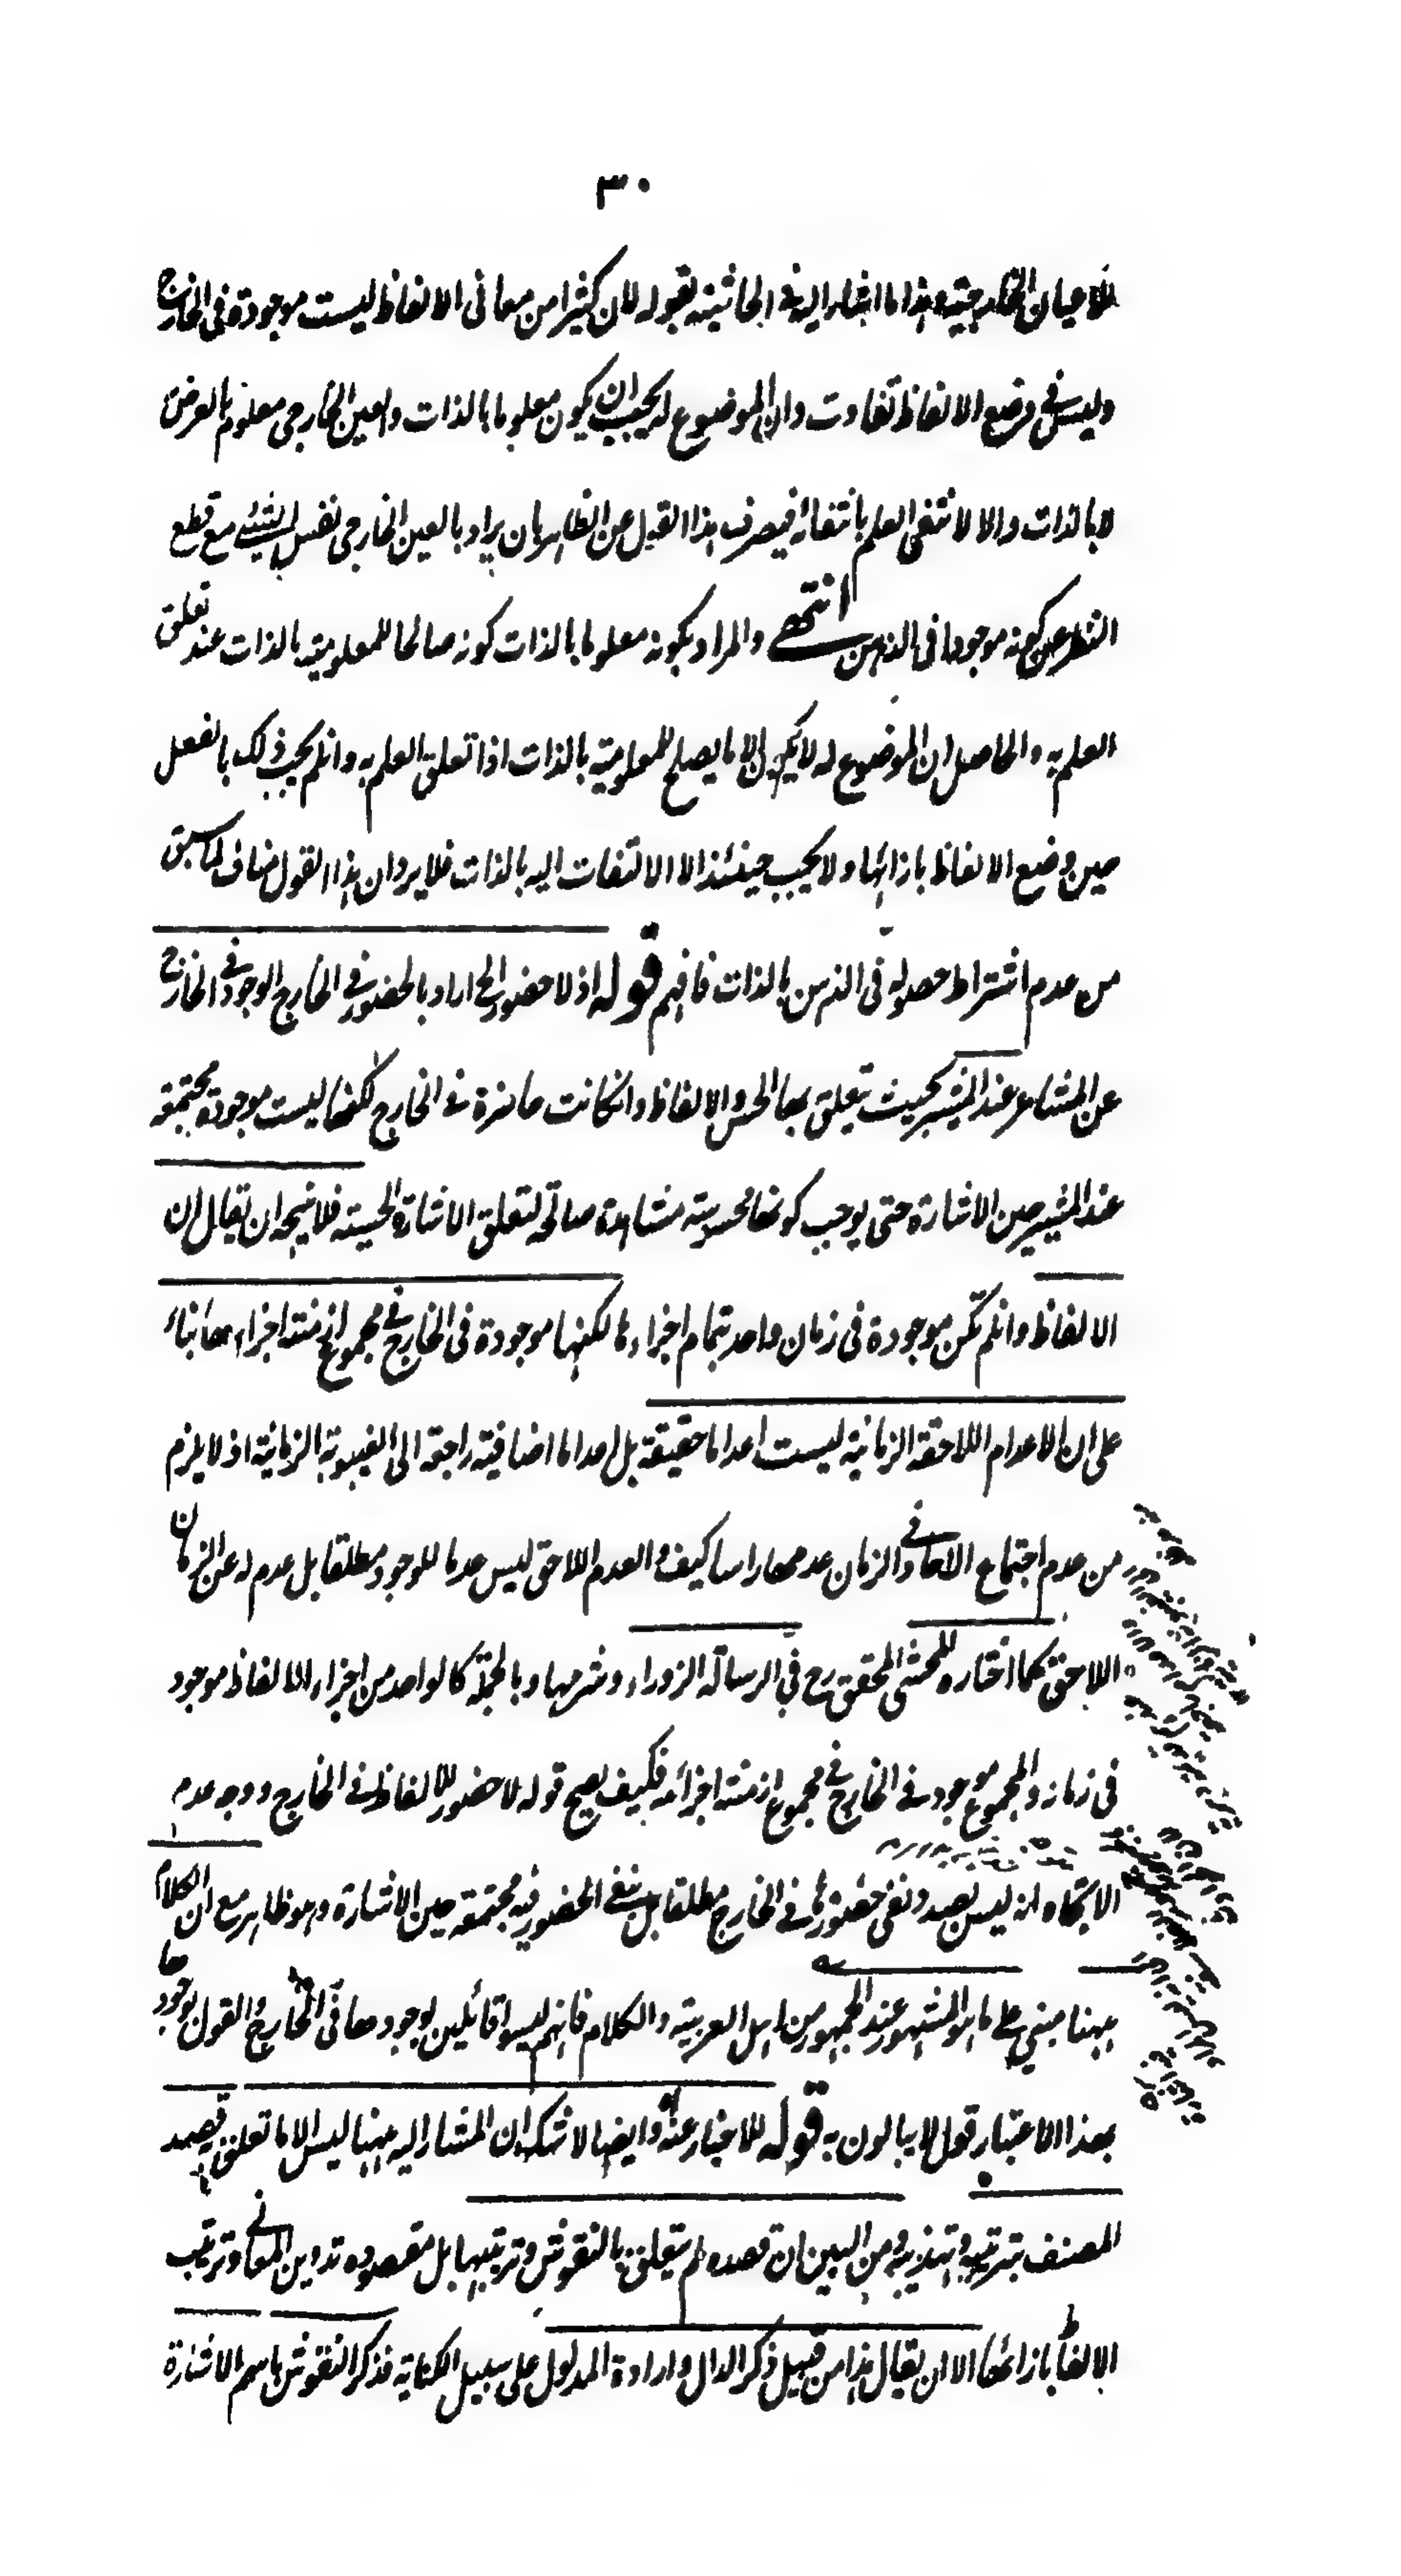 ٣٠
للاعيان الخارجية وهذا ما اشار اليه فى الحاشية بقوله لان كثيرا من معانى الالفاظ ليست موجودة فى الخارج
وليس فى وضع الالفاظ تفاوت وان الموضوع له يجب ان يكون معلوما بالذات والعين الخارجى معلوم بالعرض
لا بالذات والا لانتفى العلم بانتفائه فيصرف هذا القول عن الظاهر بان يراد بالعين الخارجى نفس الشيئ مع قطع
النظر عن كونه موجودا فى الذهن انتهى والمراد بكونه معلوما بالذات كونه صالحا للمعلومية بالذات عند تعلق
العلم به والحاصل ان الموضوع له لا يكون الا ما يصلح للمعلومية بالذات اذا تعلق العلم به وانلم يجب ذلك بالفعل
حين وضع الالفاظ بازائها ولا يجب حينئذ الا الالتفات اليه بالذات فلا يرد ان هذا القول مناف لما سبق
من عدم اشتراط حصوله فى الذهن بالذات فافهم قوله اذ لا حضور الخ اراد بالحضور فى الخارج الوجود فى الخارج
عن المشاعر عند المشير بحيث تيعلق بها الحس والالفاظ وانكانت حاضرة فى الخارج لكنها ليست موجودة مجتمعة
عند المشير حين الاشارة حتى يوجب كونها محسوسة مشاهدة صالحة لتعلق الاشارة الحسية فلا يتجه ان يقال ان
الالفاظ وانلم تكن موجودة فى زمان واحد بتمام اجزاءها لكنها موجودة فى الخارج فى مجموع ازمنة اجزاءها بناء
على ان الاعدام اللاحقة الزمانية ليست اعداما حقيقة بل اعداما اضافية راجعة الى الغيبوبة الزمانية اذ لا يلزم
من عدم اجتماع الاجزاء فى الزمان عدمها راسا كيف والعدم اللاحق ليس عدما للوجود مطلقا بل عدم له عن الزمان
اللاحق كما اختاره المحشى المحقق رح فى الرسالة الزوراء وشرحها وبالجملة كل واحد من اجزاء الالفاظ موجود
فى زمانه والمجموع موجود فى الخارج فى مجموع ازمنة اجزائه فكيف يصح قوله لا حضور للالفاظ فى الخارج ووجه عدم
الاتجاه انه ليس بصدد نفى حضورها فى الخارج مطلقا بل بنفى الحضور فيه مجتمعة حين الاشارة وهو ظاهر مع ان الكلام
ههنا مبنى على ما هو المشهور عند الجمهور من اهل العربية والكلام فانهم ليسوا قائلين بوجودها فى الخارج والقول بوجودها
بهذا الاعتبار قول لا يبالون به قوله للاخبار عنه وايضا لا شك ان المشار اليه ههنا ليس الا ما تعلق قصد
المصنف بترتيبه وتهذيبه ومن البين ان قصده لم يتعلق بالنقوش وترتيبها بل مقصوده تدوين المعانى وترتيب
الالفاظ بازائها الا ان يقال هذا من قبيل ذكر الدال وارادة المدلول على سبيل الكناية فذكر النقوش باسم الاشارة